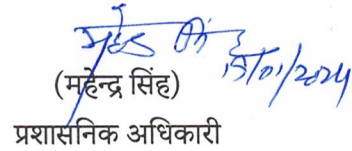 महेन्द्र सिंह 15/01/2024
(महेन्द्र सिंह)
प्रशासनिक अधिकारी